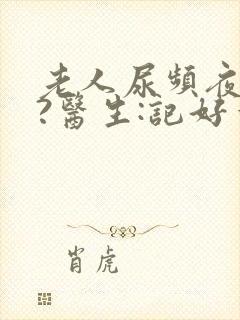 老人尿频夜
?醫生:記好
肖虎